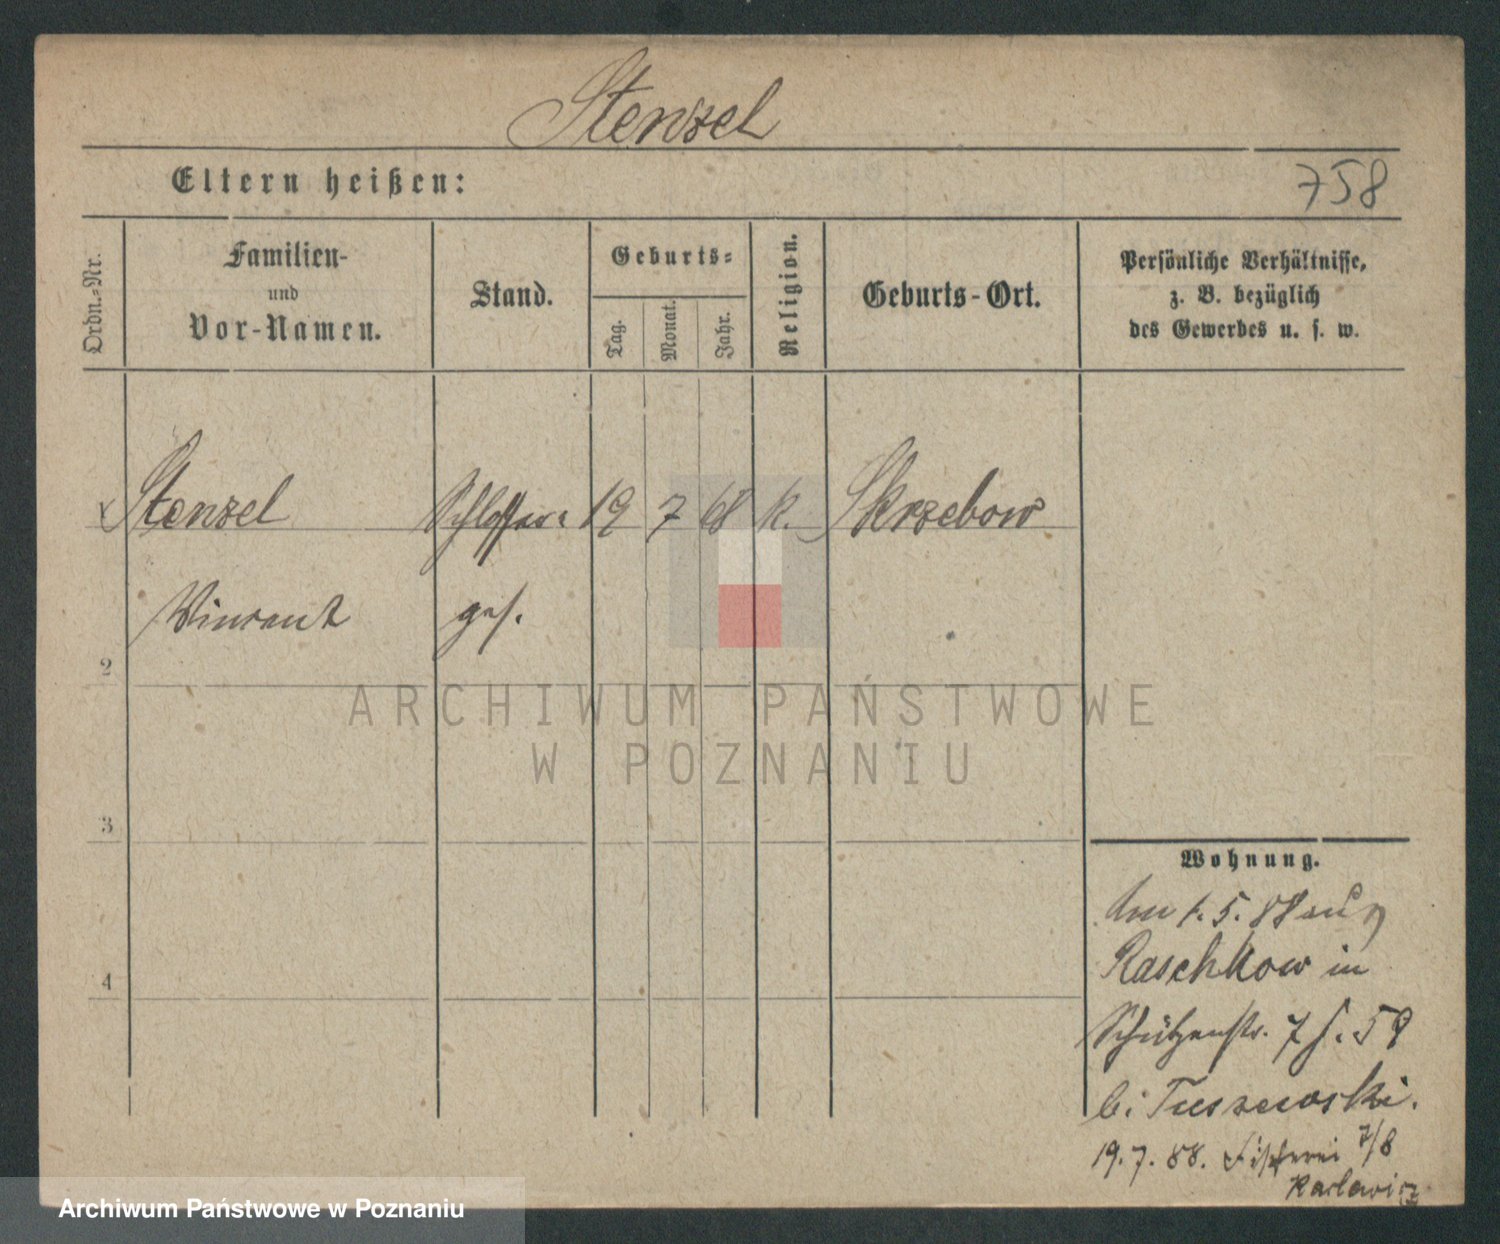 Stenzel
Eltern heißen:
758
Ordn.-Nr.
Familien-
und
Vor-Namen.
Stand.
Geburts-
Tag.
Monat.
Jahr.
Religion.
Geburts-Ort.
Persönliche Verhältnisse,
z. B. bezüglich
des Gewerbes u. s. w.
Stenzel Schlosser 19 7 68 k. Skrzebow
Vincent ges.
2
3
4
Wohnung.
1. 5. 88
Raschkow in
Schützenstr. 7
b.
19. 7. 88. Fischerei 7/8
Karlewicz
ARCHIWUM PAŃSTWOWE
W POZNANIU
Archiwum Państwowe w Poznaniu